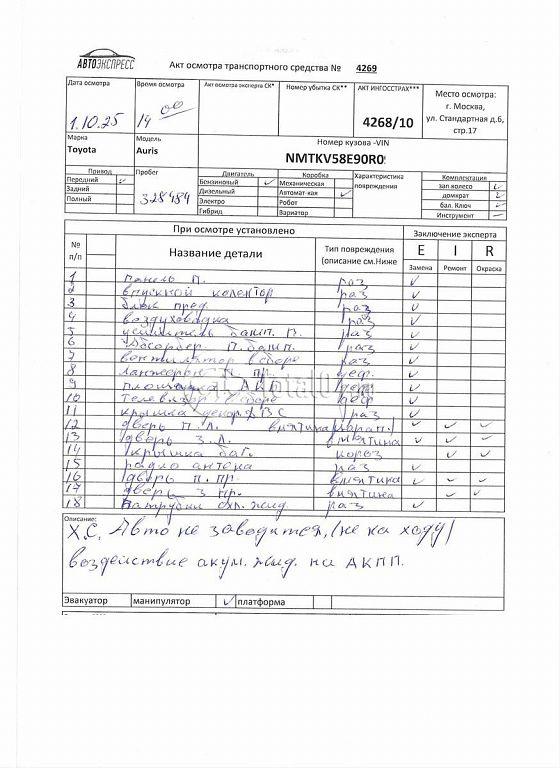 АВТОЭКСПРЕСС
Акт осмотра транспортного средства № 4269
Дата осмотра
Время осмотра
Акт осмотра эксперта СК*
Номер убытка СК**
АКТ ИНГОССТРАХ***
Место осмотра:
г. Москва,
ул. Стандартная д.6,
стр.17
1.10.25
14 00
4268/10
Марка
Модель
Номер кузова -VIN
Toyota
Auris
NMTKV58E90R0
Привод
Пробег
Двигатель
Коробка
Характеристика
повреждения
Комплектация
Передний ✓
Бензиновый ✓
Механическая
зап.колесо ✓
Задний
328484
Дизельный
Автомат-кая ✓
домкрат ✓
Полный
Электро
Робот
бал. Ключ ✓
Гибрид
Вариатор
Инструмент –
При осмотре установлено
Заключение эксперта
№
п/п
Название детали
Тип повреждения
(описание см.Ниже
E I R
Замена Ремонт Окраска
1 панель П. раз ✓
2 впускной колектор раз ✓
3 блок пред. раз ✓
4 воздуховодка раз ✓
5 усилитель бамп. П. раз ✓
6 Абсорбер. П. бамп. раз ✓
7 вентилятор в сборе раз ✓
8 ланжерон п. пр. деф. ✓
9 площадка АКБ деф. ✓
10 телевизор в сборе деф ✓
11 крышка декор ДВС раз ✓
12 дверь П. Л. вмятина/царап./ ✓ ✓ ✓
13 дверь З. Л. вмятина ✓ ✓ ✓
14 крышка баг. короз ✓ ✓
15 радио антена раз ✓
16 дверь п. пр. вмятина ✓ ✓ ✓
17 дверь з пр. вмятина ✓ ✓
18 патрубки охл. жид. раз ✓
Описание:
Х.С. Авто не заводится, /не на ходу/
воздействие акум. жид. на АКПП.
Эвакуатор манипулятор ✓ платформа